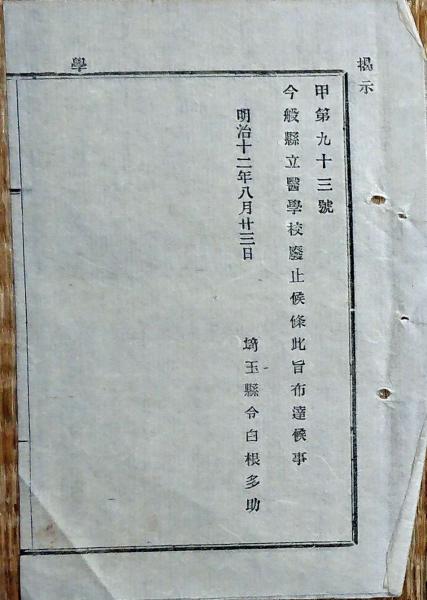 揭示
甲第九十三號
今般縣立醫學校廢止候條此旨布達候事
明治十二年八月廿三日
埼玉縣令白根多助
學